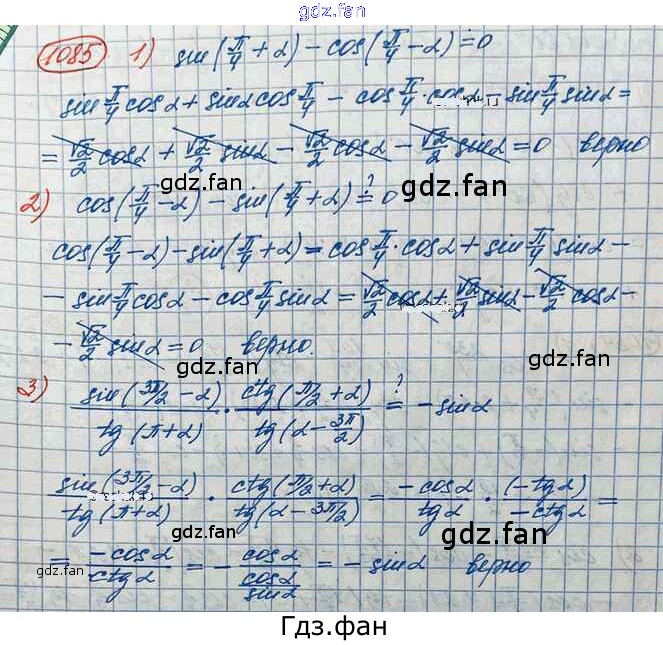 gdz.fan
1085 1) sin(π/4 + α) − cos(π/4 − α) = 0
sin π/4 cosα + sinα cos π/4 − cos π/4 · cosα − sin π/4 sinα =
= √2/2 cosα + √2/2 sinα − √2/2 cosα − √2/2 sinα = 0 верно
gdz.fan
gdz.fan
2) cos(π/4 − α) − sin(π/4 + α) ?= 0
cos(π/4 − α) − sin(π/4 + α) = cos π/4 · cosα + sin π/4 sinα −
− sin π/4 cosα − cos π/4 sinα = √2/2 cosα + √2/2 sinα − √2/2 cosα −
gdz.fan
− √2/2 sinα = 0 верно.
gdz.fan
3) sin(3π/2 − α)/tg(π + α) · ctg(π/2 + α)/tg(α − 3π/2) ?= − sinα
sin(3π/2 − α)/tg(π + α) · ctg(π/2 + α)/tg(α − 3π/2) = −cosα/tgα · (−tgα)/−ctgα =
gdz.fan
gdz.fan
= −cosα/ctgα = − cosα/(cosα/sinα) = − sinα верно
gdz.fan
gdz.fan
Гдз.фан